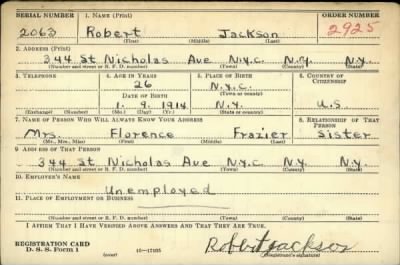 SERIAL NUMBER 1. NAME (Print) ORDER NUMBER
2063 Robert Jackson 2925
(First) (Middle) (Last)
2. ADDRESS (Print)
344 St Nicholas Ave N.Y.C. N.Y. N.Y.
(Number and street or R. F. D. number) (Town) (County) (State)
3. TELEPHONE 4. AGE IN YEARS 5. PLACE OF BIRTH 6. COUNTRY OF CITIZENSHIP
26 N.Y.C.
(Town or county)
DATE OF BIRTH
1. 9. 1914 N.Y. U.S.
(Exchange) (Number) (Mo.) (Day) (Yr.) (State or country)
7. NAME OF PERSON WHO WILL ALWAYS KNOW YOUR ADDRESS 8. RELATIONSHIP OF THAT PERSON
Mrs. Florence Frazier Sister
(Mr., Mrs., Miss) (First) (Middle) (Last)
9. ADDRESS OF THAT PERSON
344 St Nicholas Ave N.Y.C. N.Y. N.Y.
(Number and street or R. F. D. number) (Town) (County) (State)
10. EMPLOYER'S NAME
Unemployed
11. PLACE OF EMPLOYMENT OR BUSINESS
(Number and street or R. F. D. number) (Town) (County) (State)
I AFFIRM THAT I HAVE VERIFIED ABOVE ANSWERS AND THAT THEY ARE TRUE.
REGISTRATION CARD
D. S. S. Form 1 (over) Robert Jackson
(Registrant's signature)